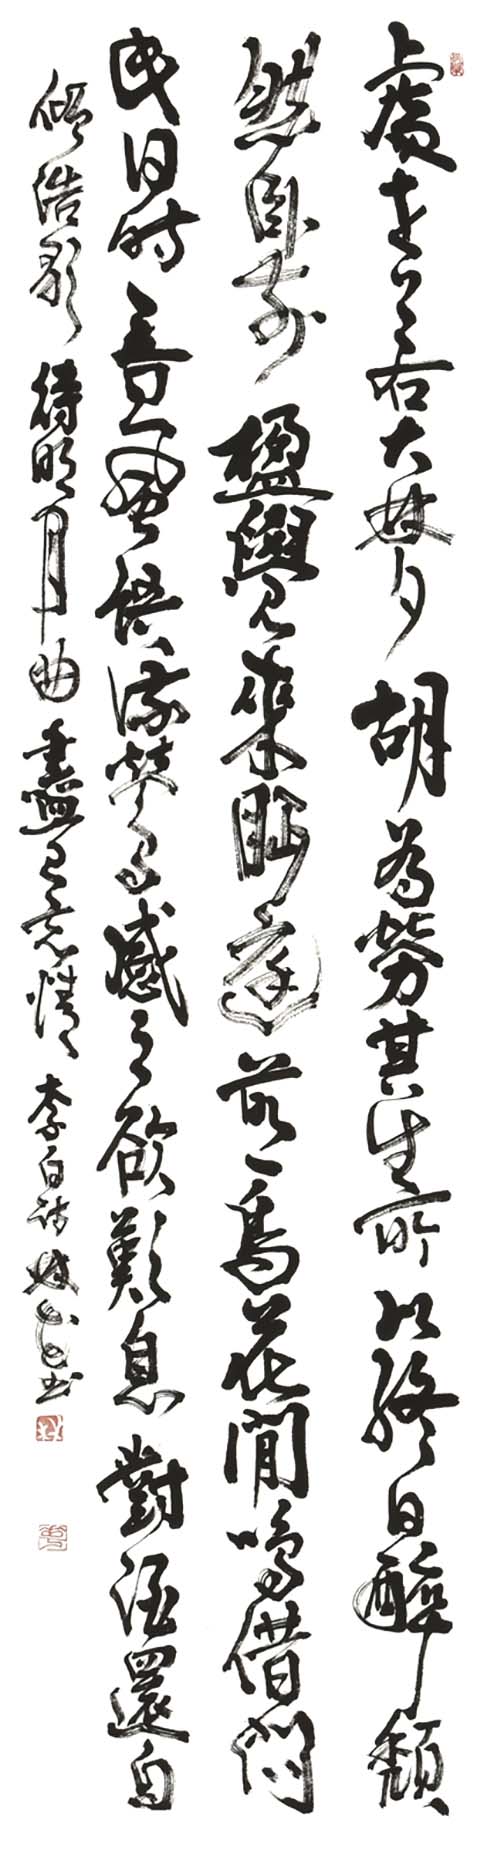 處世若大夢胡為勞其生所以終日醉頹
然臥前楹覺來眄庭前一鳥花間鳴借問
此何時春風語流鶯感之欲歎息對酒還自
傾浩歌待明月曲盡已忘情 李白詩 書